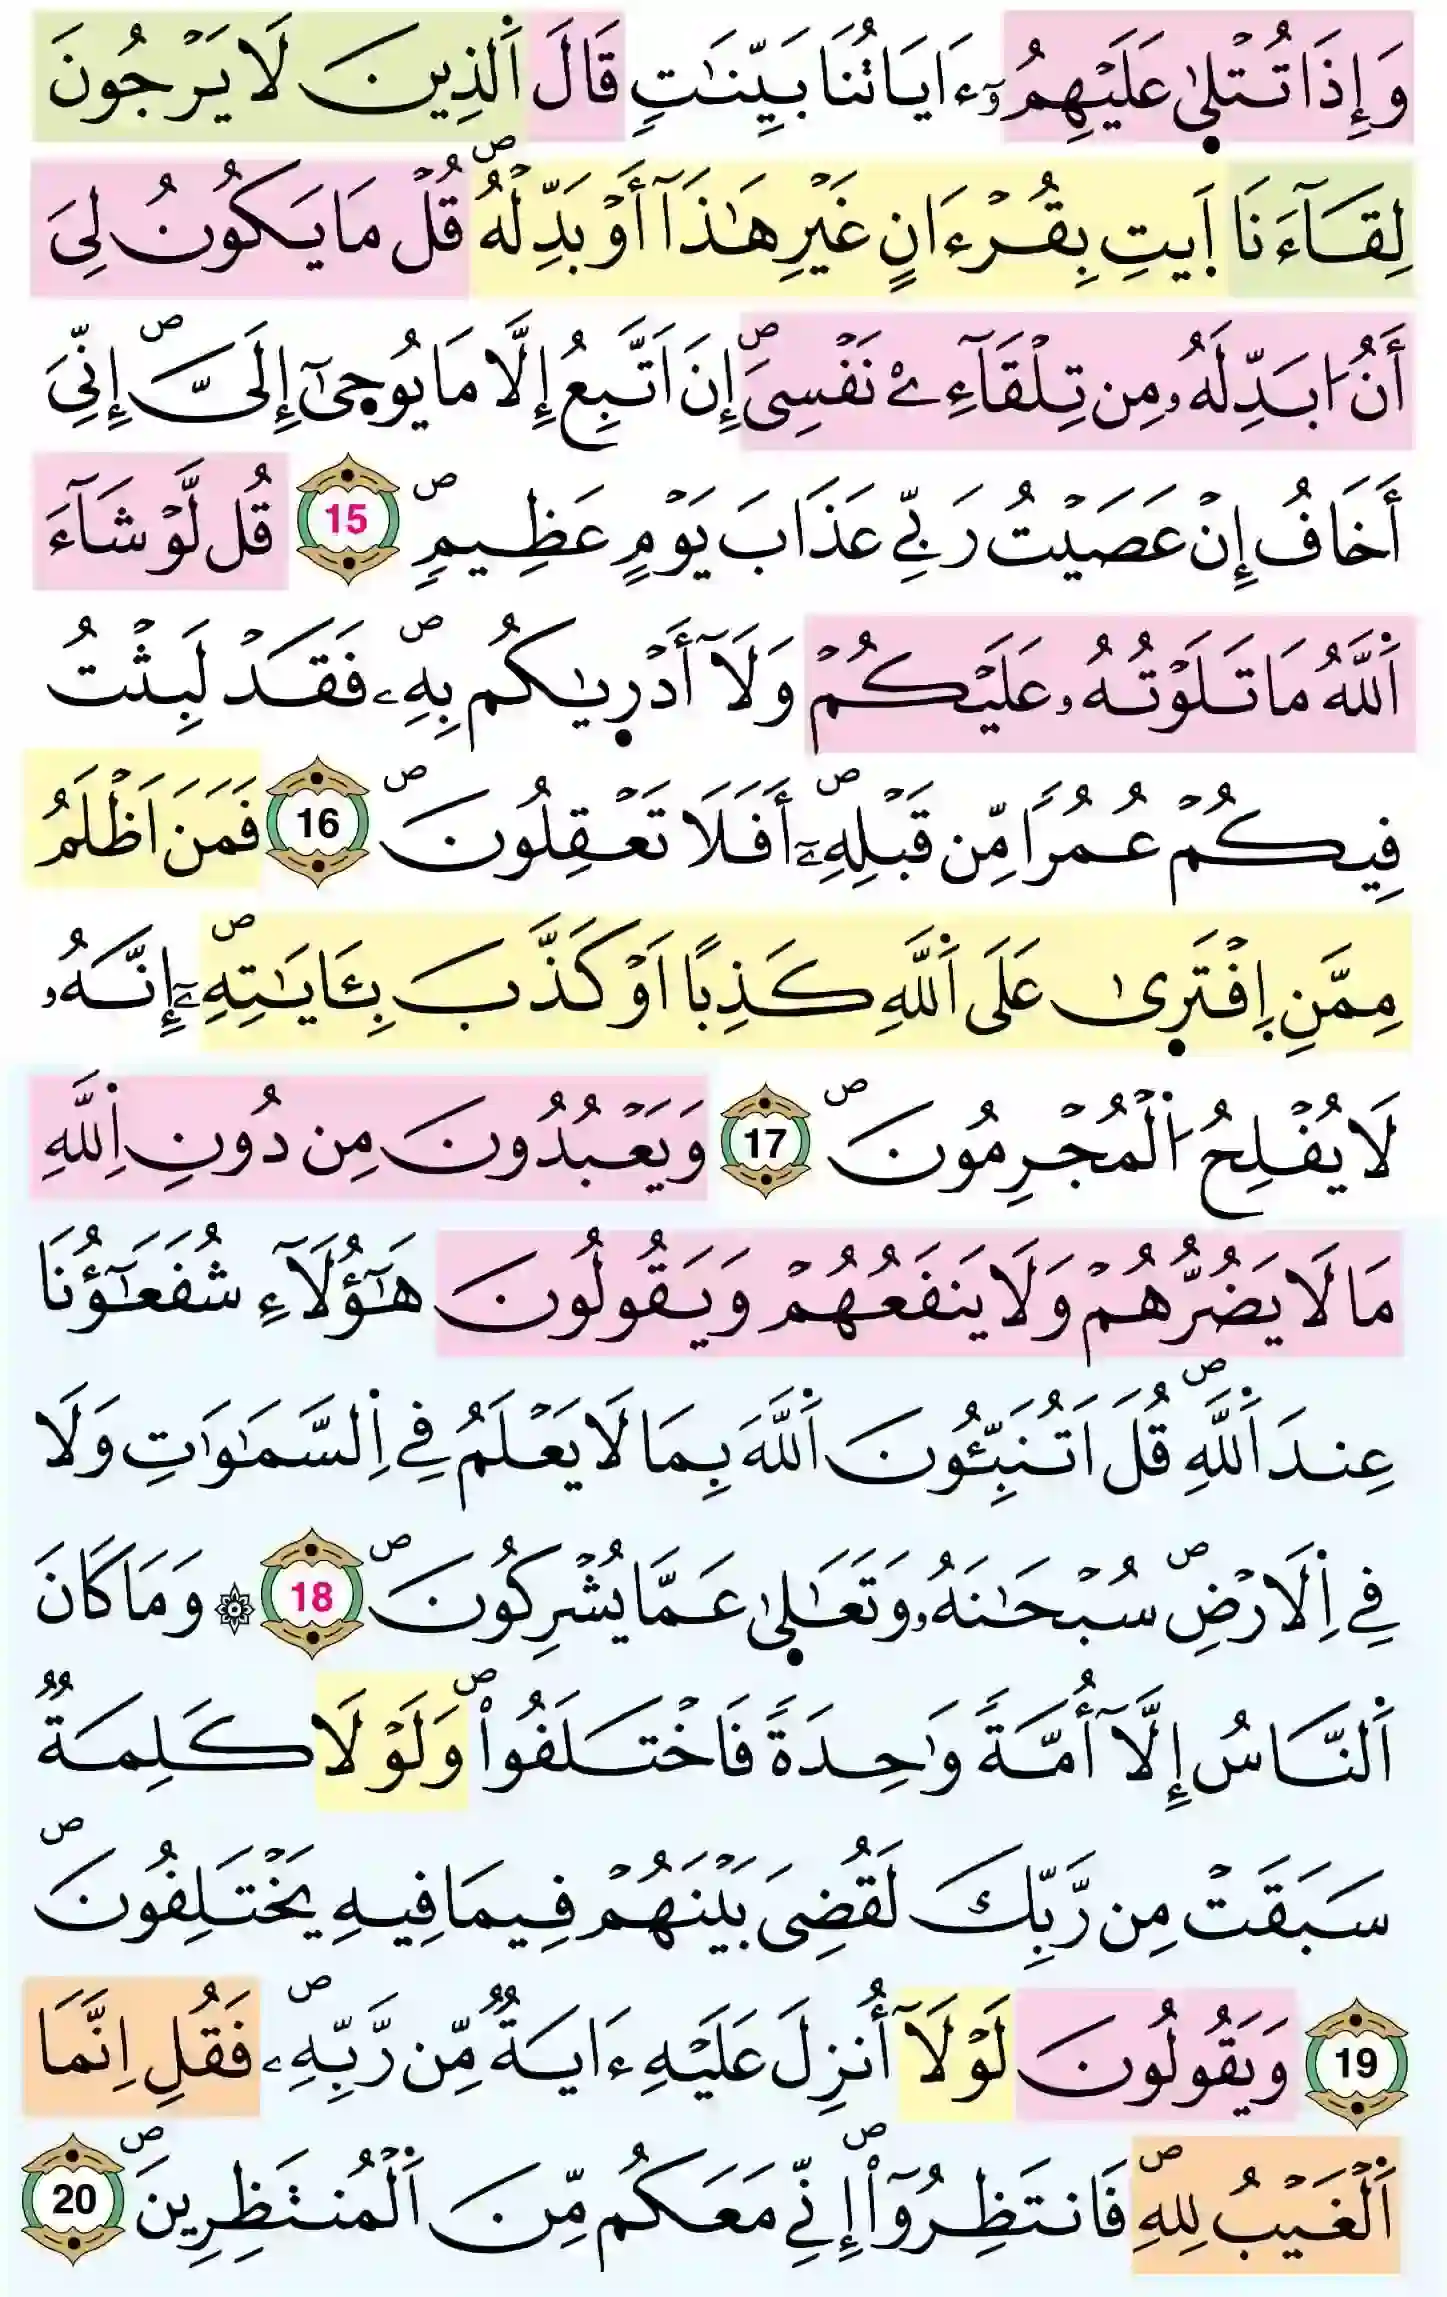 وَإِذَا تُتْلَىٰ عَلَيْهِمُۥٓ ءَايَاتُنَا بَيِّنَٰتٖ قَالَ اَ۬لذِينَ لَا يَرْجُونَ
لِقَآءَنَا اَ۪يتِ بِقُرْءَانٍ غَيْرِ هَٰذَآ أَوْ بَدِّلْهُۖ قُلْ مَا يَكُونُ لِيَ
أَنُ ا۟بَدِّلَهُۥ مِن تِلْقَآءِےْ نَفْسِيَۖ إِنَ اَتَّبِعُ إِلَّا مَا يُوحَىٰٓ إِلَيَّۖ إِنِّيَ
أَخَافُ إِنْ عَصَيْتُ رَبِّے عَذَابَ يَوْمٍ عَظِيمٖۖ 15 قُل لَّوْ شَآءَ
اَ۬للَّهُ مَا تَلَوْتُهُۥ عَلَيْكُمْ وَلَآ أَدْر۪يٰكُم بِهِۦۖ فَقَدْ لَبِثْتُ
فِيكُمْ عُمُراٗ مِّن قَبْلِهِۦٓۖ أَفَلَا تَعْقِلُونَۖ 16 فَمَنَ اَظْلَمُ
مِمَّنِ اِ۪فْتَر۪ىٰ عَلَى اَ۬للَّهِ كَذِباً اَوْ كَذَّبَ بِـَٔايَٰتِهِۦٓۖ إِنَّهُۥ
لَا يُفْلِحُ اُ۬لْمُجْرِمُونَۖ 17 وَيَعْبُدُونَ مِن دُونِ اِ۬للَّهِ
مَا لَا يَضُرُّهُمْ وَلَا يَنفَعُهُمْ وَيَقُولُونَ هَٰٓؤُلَآءِ شُفَعَٰٓؤُنَا
عِندَ اَ۬للَّهِۖ قُلَ اَتُنَبِّـُٔونَ اَ۬للَّهَ بِمَا لَا يَعْلَمُ فِے اِ۬لسَّمَٰوَٰتِ وَلَا
فِے اِ۬لَارْضِۖ سُبْحَٰنَهُۥ وَتَعَٰلَىٰ عَمَّا يُشْرِكُونَۖ 18 ۞ وَمَا كَانَ
اَ۬لنَّاسُ إِلَّآ أُمَّةٗ وَٰحِدَةٗ فَاخْتَلَفُواْۖ وَلَوْلَا كَلِمَةٞ
سَبَقَتْ مِن رَّبِّكَ لَقُضِيَ بَيْنَهُمْ فِيمَا فِيهِ يَخْتَلِفُونَۖ
19 وَيَقُولُونَ لَوْلَآ أُنزِلَ عَلَيْهِ ءَايَةٞ مِّن رَّبِّهِۦۖ فَقُلِ اِنَّمَا
اَ۬لْغَيْبُ لِلهِۖ فَانتَظِرُوٓاْۖ إِنِّے مَعَكُم مِّنَ اَ۬لْمُنتَظِرِينَۖ 20